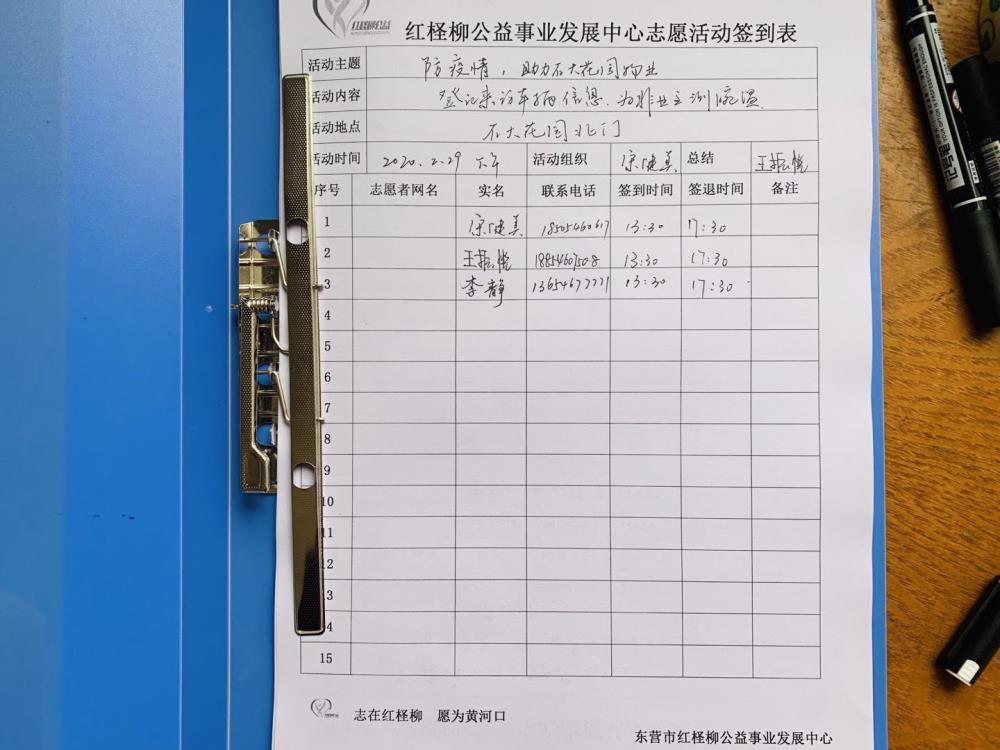 红柽柳公益
红柽柳公益事业发展中心志愿活动签到表
活动主题 防疫情，助力石大花园物业
活动内容 登记来访车辆信息、为非业主测腕温
活动地点 石大花园北门
活动时间 2020.2.29 下午 活动组织 宗健真 总结 王振悦
序号 志愿者网名 实名 联系电话 签到时间 签退时间 备注
1 宗健真 18505460617 13:30 17:30
2 王振悦 18854607508 13:30 17:30
3 李静 13654677771 13:30 17:30
4
5
6
7
8
9
10
11
12
13
14
15
志在红柽柳 愿为黄河口
东营市红柽柳公益事业发展中心